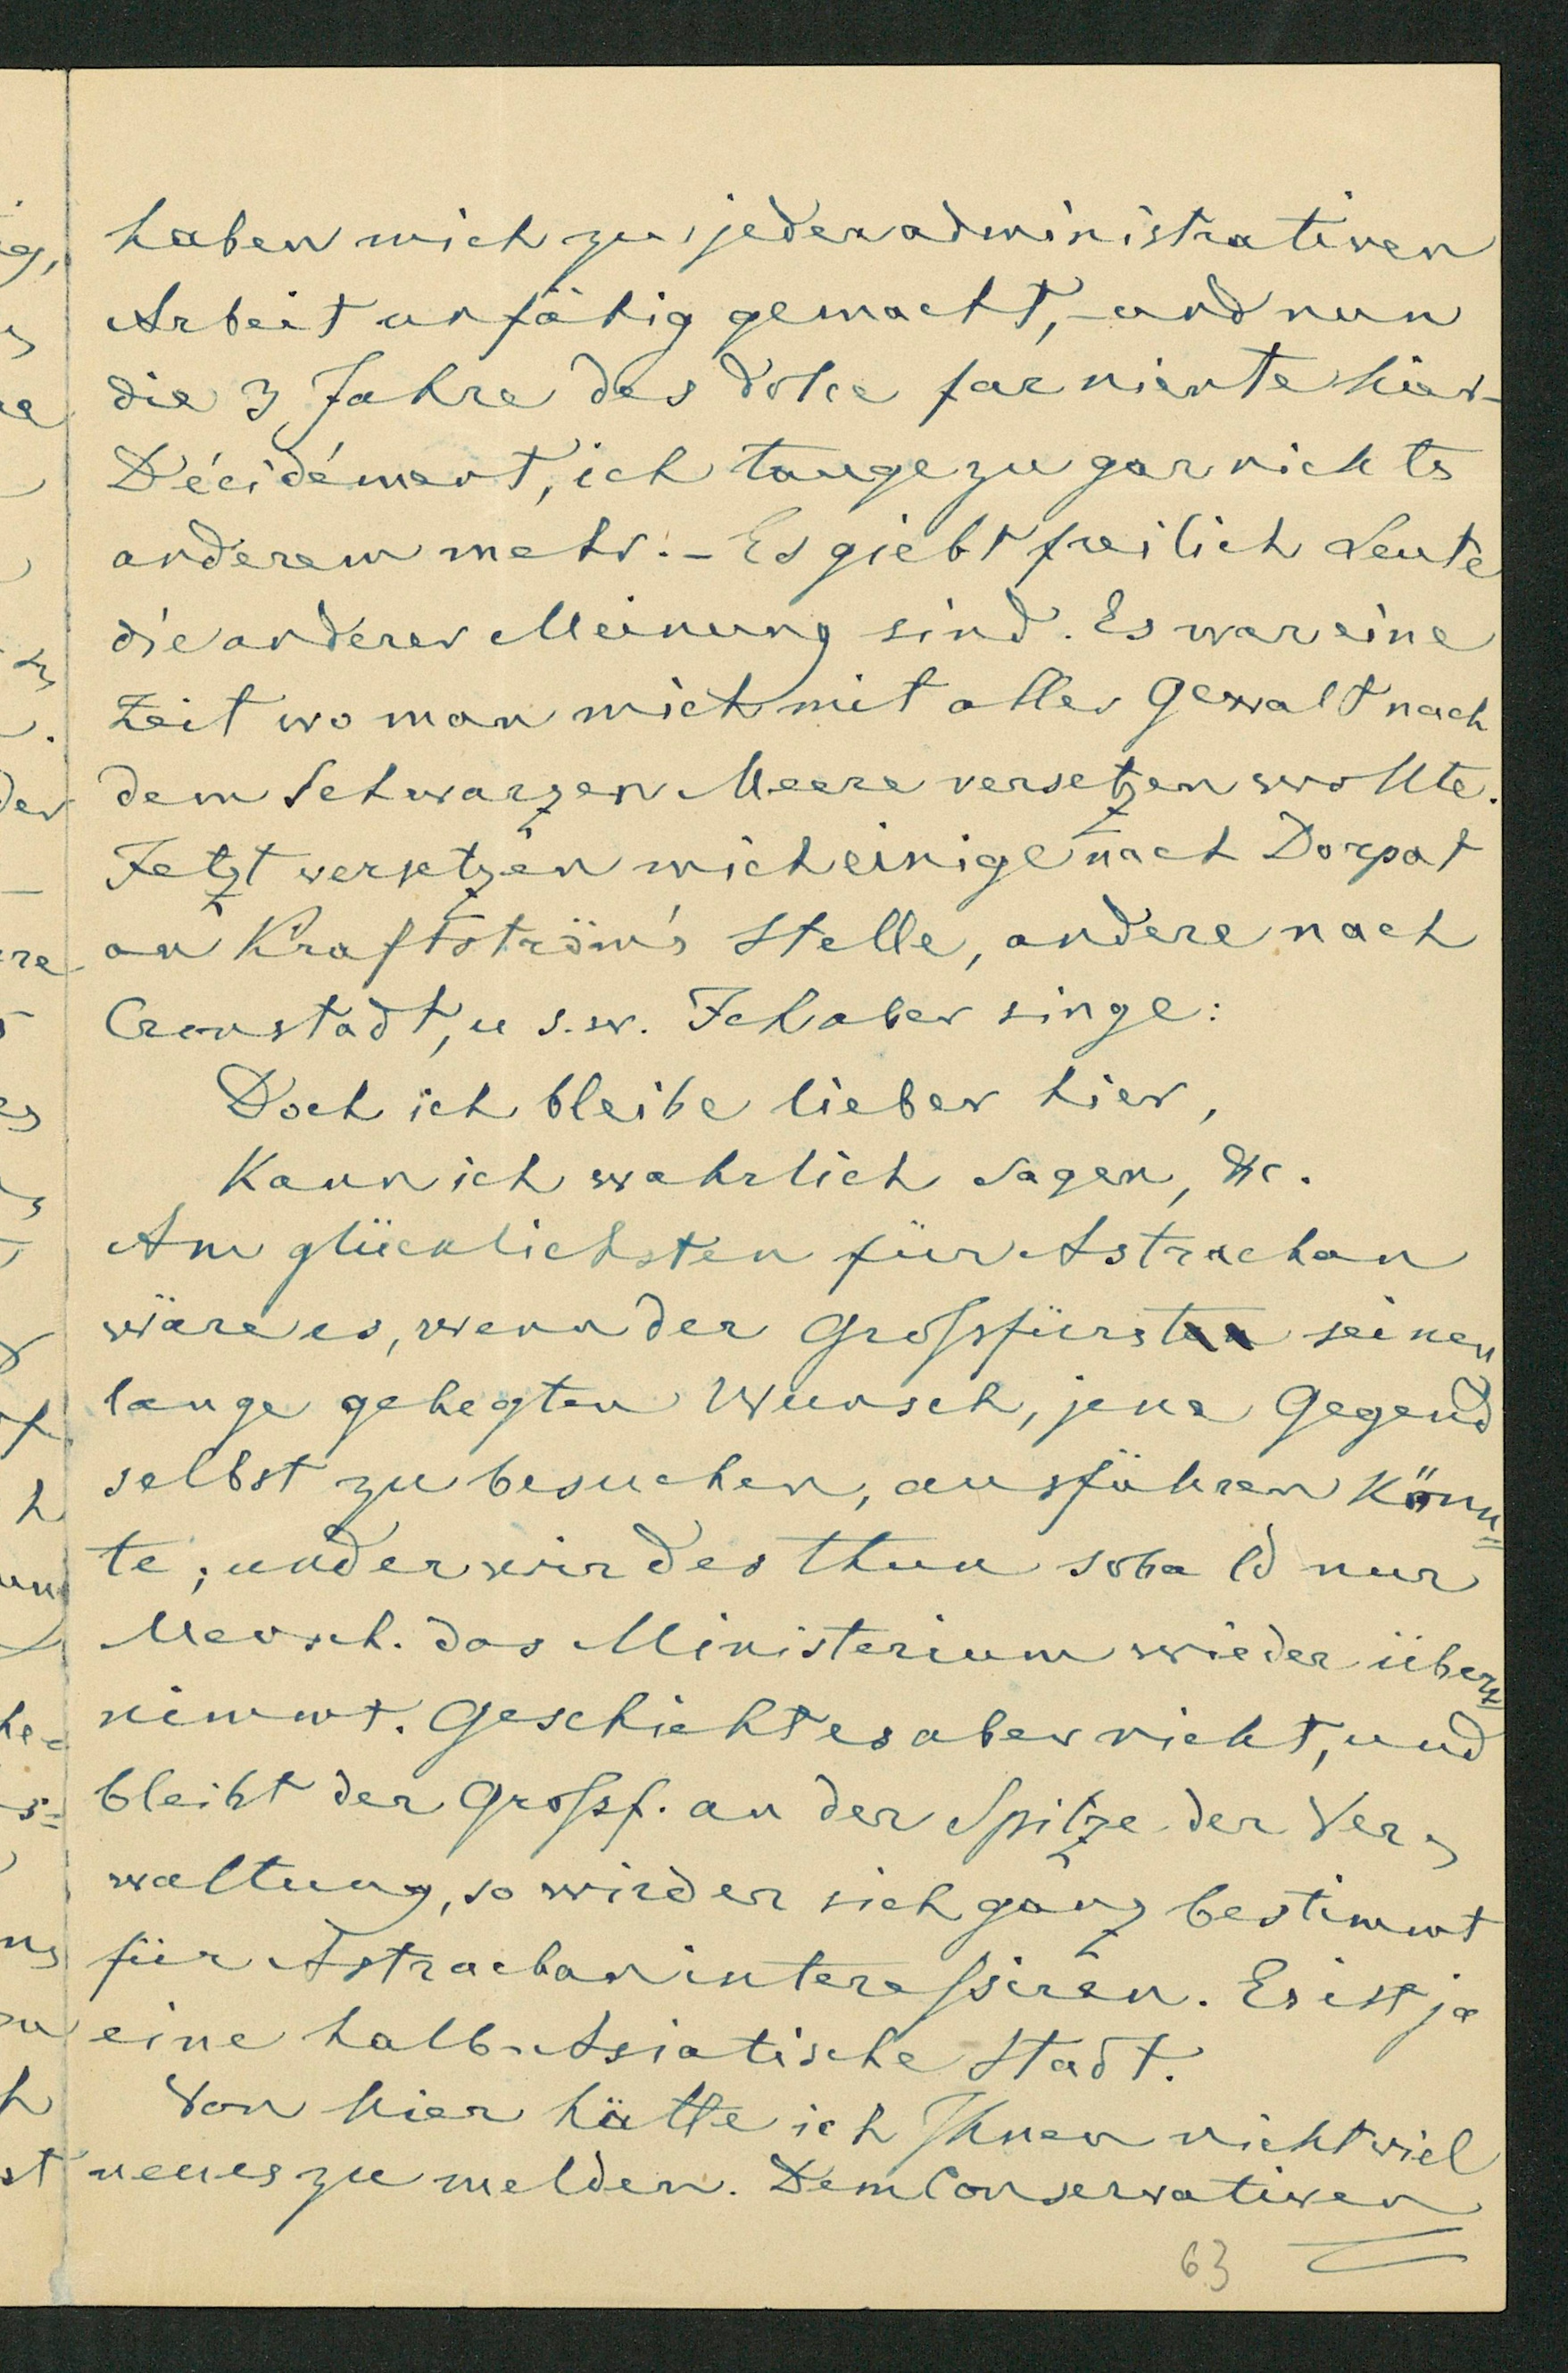 haben mich zu jeder administrativen
Arbeit unfähig gemacht, – und nun
die 3 Jahre des dolce far niente hier –
Décidément, ich tauge zu gar nichts
anderem mehr. – Es giebt freilich Leute
die anderer Meinung sind. Es war eine
Zeit wo man mich mit aller Gewalt nach
dem Schwarzen Meere versetzen wollte.
Jetzt versetzen mich einige nach Dorpat
an Kraftström's Stelle, andere nach
Cronstadt, u s.w. Ich aber singe:
Doch ich bleibe lieber hier,
Kann ich wahrlich sagen, &c.
Am glücklichsten für Astrachan
wäre es, wenn der Großfürst seinen
lange gehegten Wunsch, jene Gegend
selbst zu besuchen, ausführen könn=
te; und er wird es thun sobald nur
Mensch. das Ministerium wieder über=
nimmt. Geschieht es aber nicht, und
bleibt der Großf. an der Spitze der Ver=
waltung, so wird er sich ganz bestimmt
für Astrachan interessiren. Es ist ja
eine halb-Asiatische Stadt.
Von hier hätte ich Ihnen nicht viel
neues zu melden. Dem Conservativen
63